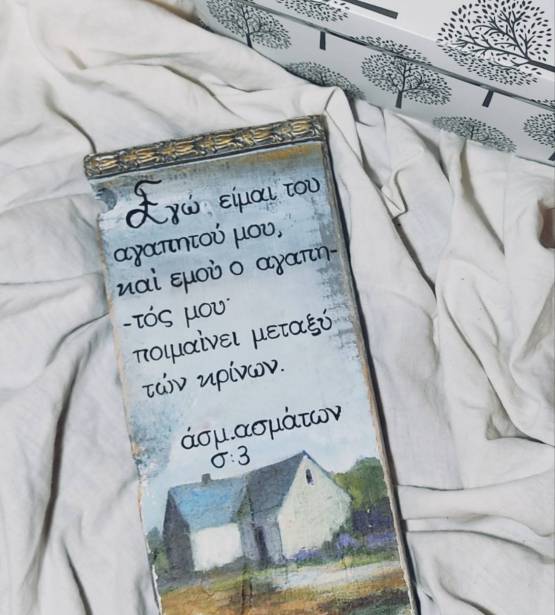 Εγώ είμαι του
αγαπητού μου,
καί εμού ο αγαπη-
-τός μου·
ποιμαίνει μεταξύ
τών κρίνων.
άσμ.ασμάτων
σ:3